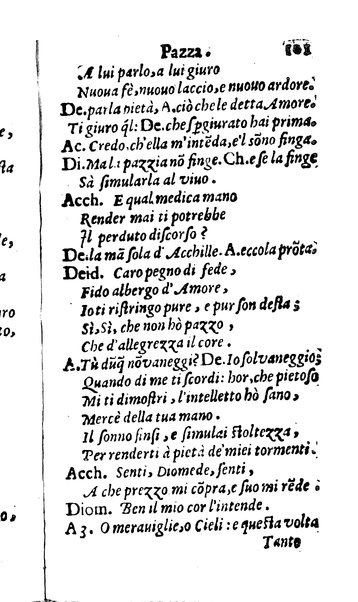 Pazza. 103
A lui parlo, a lui giuro
Nuoua fè, nuouo laccio, e nuouo ardore.
De. parla pietà, A. ciò che le detta Amore.
Ti giuro q̃l: De. che spgiurato hai prima.
Ac. Credo, ch'ella m'intẽda, e'l sõno finga.
Di. Ma la pazzia nõ finge. Ch. e se la finge
Sà simularla al viuo.
Acch. E qual medica mano
Render mai ti potrebbe
Il perduto discorso?
De. la mã sola d'Acchille. A. eccola prõta.
Deid. Caro pegno di fede,
Fido albergo d'Amore,
Io ti ristringo pure, e pur son desta;
Sì, Sì, che non hò pazzo,
Che d'allegrezza il core.
A. Tù dũq̃ nõ vaneggi? De. Io sol vaneggio;
Quando di me ti scordi: hor, che pietoso
Mi ti dimostri, l'intelletto hò sano,
Mercè della tua mano.
Il sonno finsi, e simulai stoltezza,
Per renderti à pietà de' miei tormenti.
Acch. Senti, Diomede, senti,
A che prezzo mi cõpra, e suo mi rẽde.
Diom. Ben il mio cor l'intende.
A 3. O merauiglie, o Cieli: e questa volta
Tanto
e,
sta
le,
a
uro
to,
o,